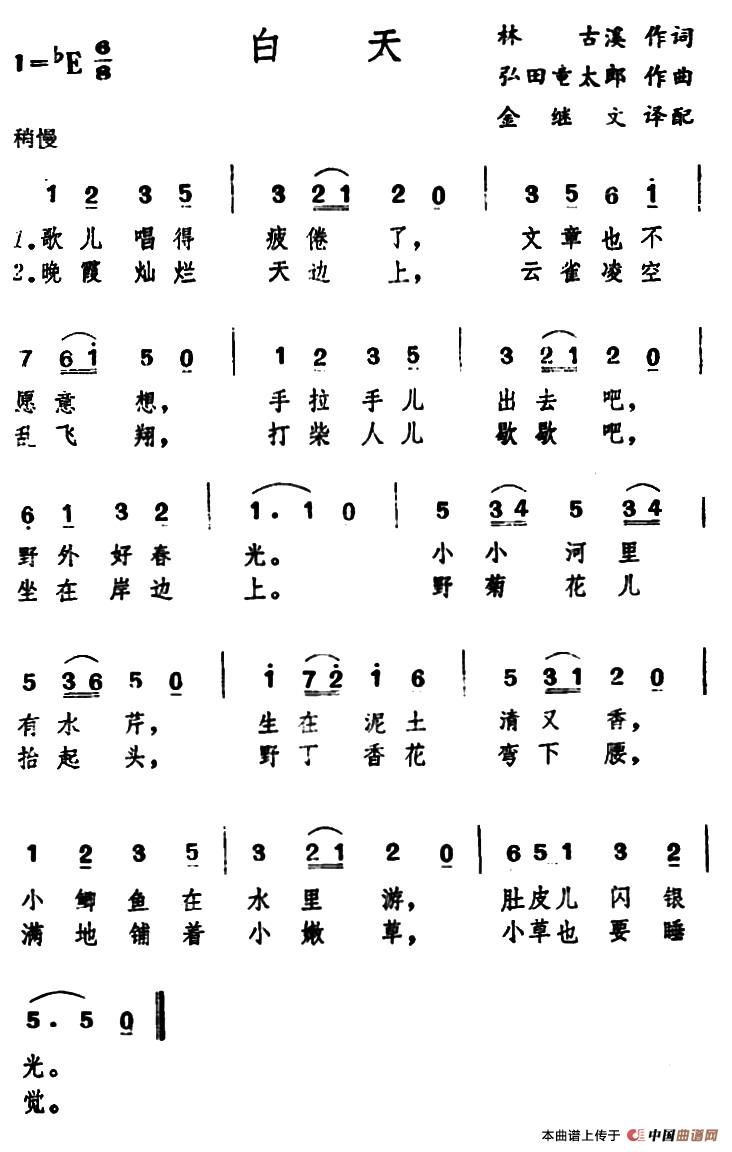 白 天
1=♭E 6/8
林 古溪 作词
弘田竜太郎 作曲
金 继 文 译配
稍慢
1 2 3 5 | 3 21 2 0 | 3 5 6 i |
1.歌儿 唱得 疲倦 了, 文章也不
2.晚霞 灿烂 天边 上, 云雀凌空
7 6i 5 0 | 1 2 3 5 | 3 21 2 0 |
愿意 想, 手拉手儿 出去 吧,
乱飞 翔, 打柴人儿 歇歇 吧,
6 1 3 2 | 1. 1 0 | 5 34 5 34 |
野外好春 光。 小小 河里
坐在岸边 上。 野菊 花儿
5 36 5 0 | i 72 i 6 | 5 31 2 0 |
有水 芹, 生在 泥土 清又 香,
抬起 头, 野丁 香花 弯下 腰,
1 2 3 5 | 3 21 2 0 | 6 5 1 3 2 |
小鲫鱼在 水里 游, 肚皮儿闪银
满地铺着 小嫩 草, 小草也要睡
5. 5 0
光。
觉。
本曲谱上传于 中国曲谱网